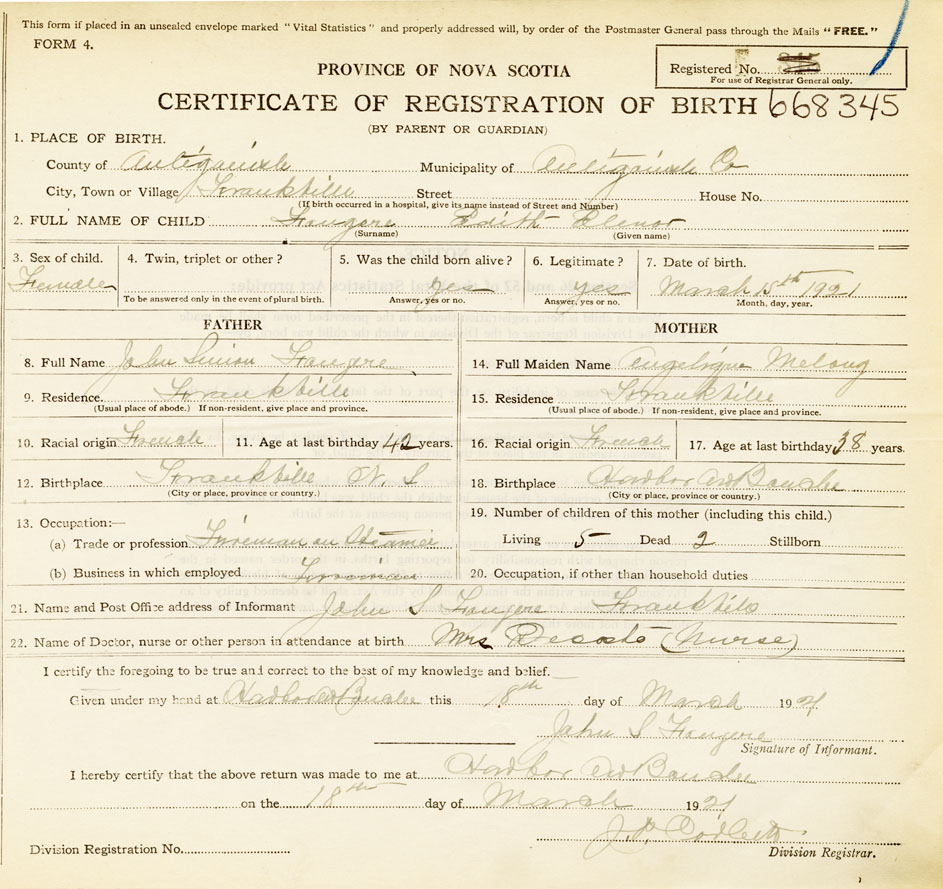 This form if placed in an unsealed envelope marked "Vital Statistics" and properly addressed will, by order of the Postmaster General pass through the Mails "FREE."
FORM 4.
PROVINCE OF NOVA SCOTIA
Registered No.
For use of Registrar General only.
CERTIFICATE OF REGISTRATION OF BIRTH 668345
(BY PARENT OR GUARDIAN)
1. PLACE OF BIRTH.
County of Antigonish Municipality of Antigonish Co
City, Town or Village Frankville Street House No.
(If birth occurred in a hospital, give its name instead of Street and Number)
2. FULL NAME OF CHILD Fougere Edith Elenor
(Surname) (Given name)
3. Sex of child. 4. Twin, triplet or other? 5. Was the child born alive? 6. Legitimate? 7. Date of birth.
Female yes yes March 15th 1921
To be answered only in the event of plural birth. Answer, yes or no. Answer, yes or no. Month, day, year.
FATHER MOTHER
8. Full Name John Simon Fougere 14. Full Maiden Name Angelique Melong
9. Residence. Frankville 15. Residence Frankville
(Usual place of abode.) If non-resident, give place and province. (Usual place of abode.) If non-resident, give place and province.
10. Racial origin French 11. Age at last birthday 42 years. 16. Racial origin French 17. Age at last birthday 38 years.
12. Birthplace Frankville N. S 18. Birthplace Harbor AuBouche
(City or place, province or country.) (City or place, province or country.)
13. Occupation:— 19. Number of children of this mother (including this child.)
(a) Trade or profession Fireman on Steamer Living 5 Dead 2 Stillborn
(b) Business in which employed Fireman 20. Occupation, if other than household duties
21. Name and Post Office address of Informant John S Fougere Frankville
22. Name of Doctor, nurse or other person in attendance at birth Mrs Decoste (Nurse)
I certify the foregoing to be true and correct to the best of my knowledge and belief.
Given under my hand at Harbor AuBouche this 18th day of March 1921
John S Fougere
Signature of Informant.
I hereby certify that the above return was made to me at Harbor AuBouche
on the 18th day of March 1921
J.P.
Division Registration No. Division Registrar.